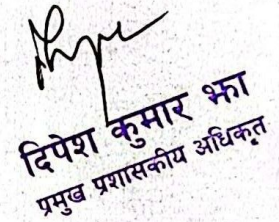 दिपेश कुमार झा
प्रमुख प्रशासकीय अधिकृत